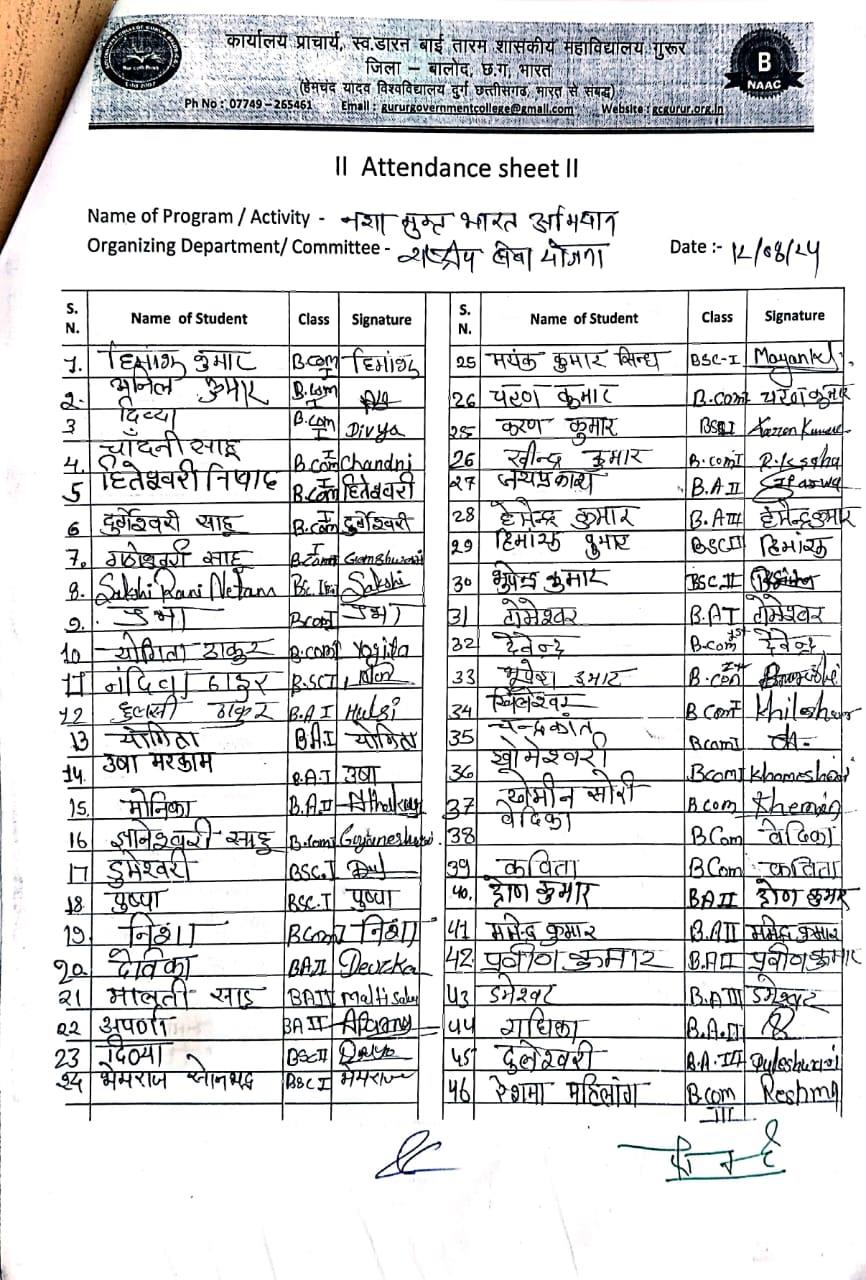 कार्यालय प्राचार्य, स्व.डारन बाई तारम शासकीय महाविद्यालय गुरूर
जिला – बालोद, छ.ग, भारत
(हेमचंद यादव विश्वविद्यालय दुर्ग छत्तीसगढ़, भारत से संबद्ध)
Ph No : 07749 – 265461 Email : gururgovernmentcollege@gmail.com Website : gcgurur.org.in
B
NAAC
II Attendance sheet II
Name of Program / Activity - नशा मुक्त भारत अभियान
Organizing Department/ Committee - राष्ट्रीय सेवा योजना Date :- 12/08/24
S. N. Name of Student Class Signature
1. हिमांशु कुमार B.com I हिमांशु
2. अनिल कुमार B.com I
3 दिव्या B.com I Divya
4. चांदनी साहू B.com I Chandni
5 हितेश्वरी निषाद B.com I हितेश्वरी
6 दुर्गेश्वरी साहू B.com I दुर्गेश्वरी
7. साहू B.com I
8. Sakshi Rani Netam BSc. Sakshi
9. B.com I
10 योगिता ठाकुर B.com I Yogita
11 नंदिता ठाकुर B.SC I
12 हुलसी ठाकुर B.A I Hulsi
13 योगिता B.A I योगिता
14. उषा मरकाम B.A I उषा
15. मोनिका B.A.II
16 ज्ञानेश्वरी साहू B.Com I Gyaneshwari
17 डुमेश्वरी BSC.I
18 पुष्पा BSC.I पुष्पा
19. निशा BCom I निशा
20 देविका BA II Devika
21 मालती साहू BA II Malti Sahu
22 अपर्णा BA II
23 दिव्या BSC II Divya
24 भेमराज सोनभद्र BSC I भेमराज
S. N. Name of Student Class Signature
25 मयंक कुमार सिन्हा BSC-I Mayank
26 चरण कुमार B.com I चरण कुमार
25 करण कुमार BSC I Karan Kumar
26 रवीन्द्र कुमार B.com I
27 जयप्रकाश B.A II
28 हेमेन्द्र कुमार B.A III हेमेन्द्र कुमार
29 हिमांशु कुमार BSC II हिमांशु
30 भूपेन्द्र कुमार BSC.II
31 टोमेश्वर B.A I टोमेश्वर
32 देवेन्द्र B.com 1st देवेन्द्र
33 भूपेश कुमार B.com
34 खिलेश्वर B Com I Khileshwar
35 चन्द्रकांत Bcom I
36 खोमेश्वरी Bcom I Khomeshwari
37 खेमीन सोरी B.com Khemin
38 वेदिका BCom वेदिका
39 कविता BCom कविता
40. द्रोण कुमार BA II द्रोण कुमार
41 ममेन्द्र कुमार B.A II ममेन्द्र कुमार
42 प्रवीण कुमार B.A II प्रवीण कुमार
43 डमेश्वर B.A III डमेश्वर
44 राधिका B.A.II
45 दुलेश्वरी B.A.III Duleshwari
46 रेशमा महिलांग B.com III Reshma